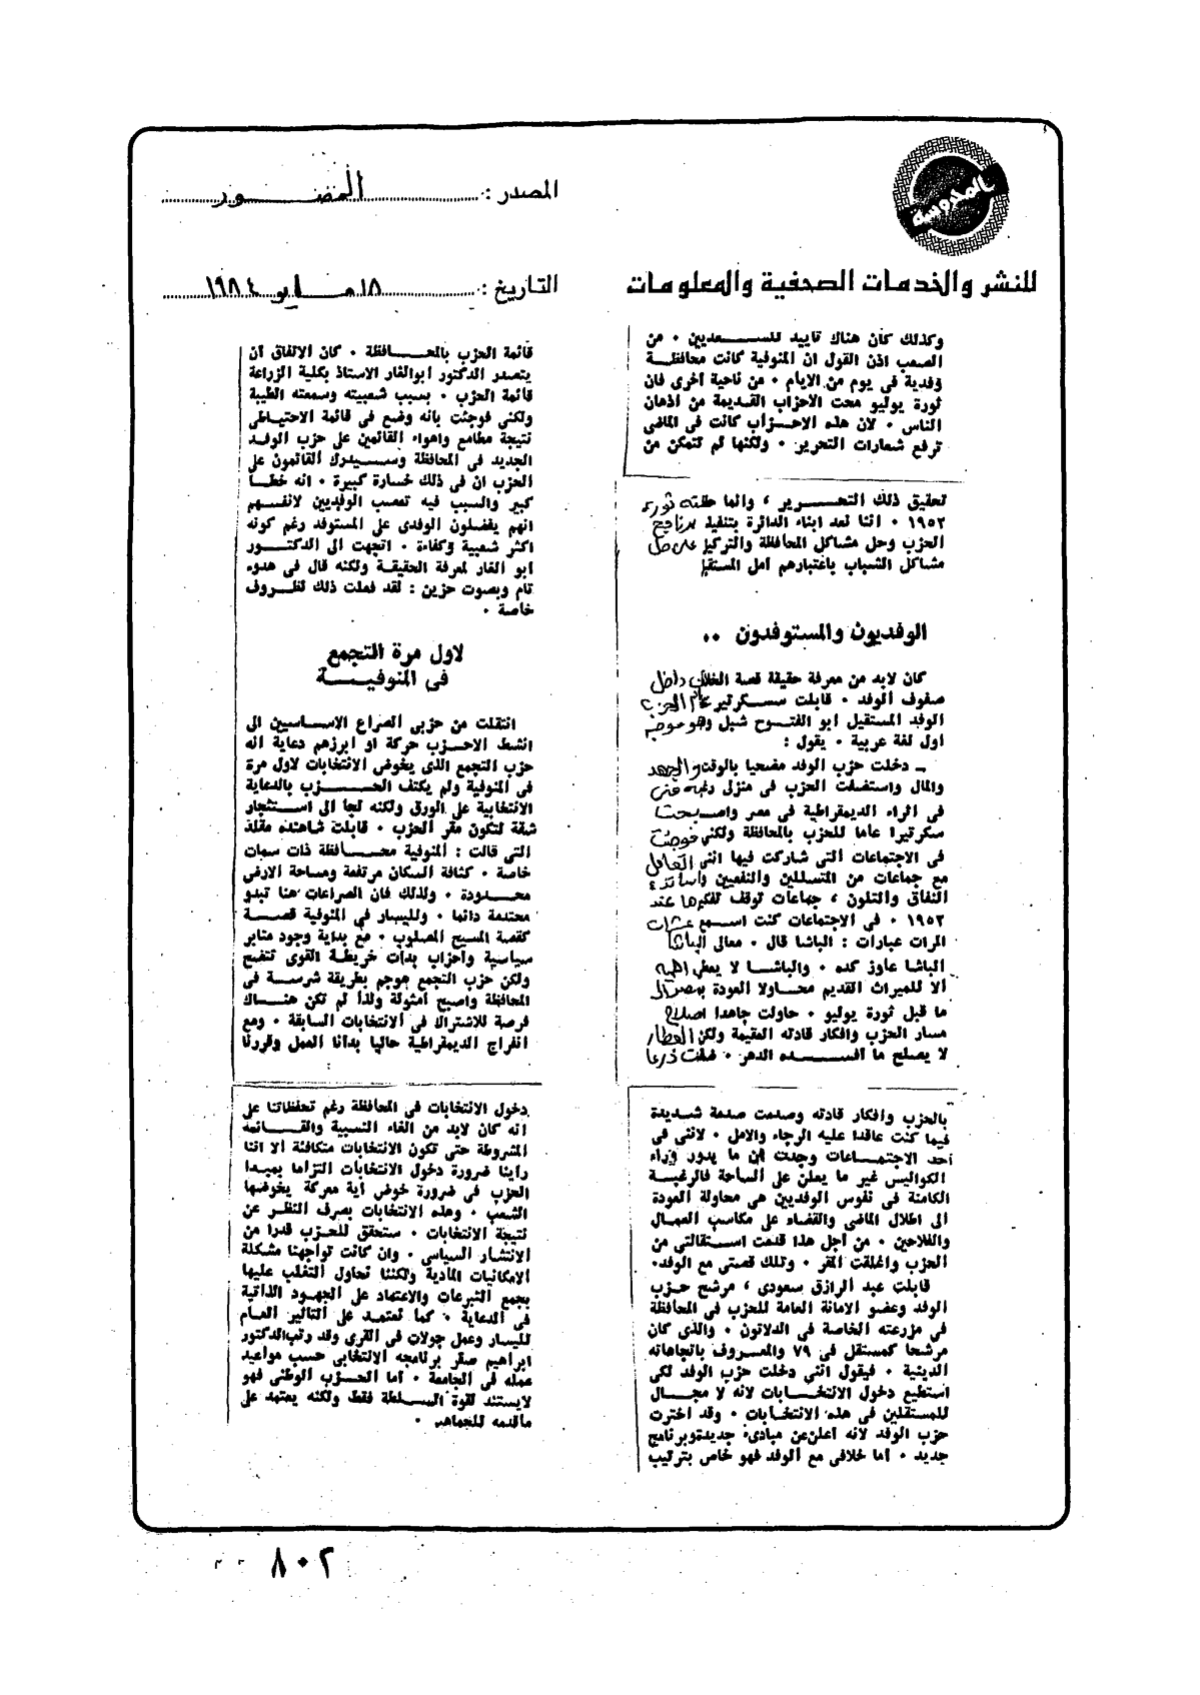 المحروسة
للنشر والخدمات الصحفية والمعلومات
المصدر : المصور
التاريخ : ١٨ مايو ١٩٨٤
وكذلك كان هناك تاييد للسعديين ٠ من
الصعب اذن القول ان المنوفية كانت محافظة
وفدية فى يوم من الايام ٠ من ناحية أخرى فان
ثورة يوليو محت الاحزاب القديمة من اذهان
الناس ٠ لان هذه الاحزاب كانت فى الماضى
ترفع شعارات التحرير ٠ ولكنها لم تتمكن من
تحقيق ذلك التحرير ، وانما حققته ثورة
١٩٥٢ ٠ اننا نعد ابناء الدائرة بتنفيذ برنامج
الحزب وحل مشاكل المحافظة والتركيز على حل
مشاكل الشباب باعتبارهم أمل المستقبل
الوفديون والمستوفدون ٠٠
كان لابد من معرفة حقيقة قصة الخلاف داخل
صفوف الوفد ٠ قابلت سسكرتير عام الحزب
الوفد المستقيل ابو الفتوح شبل وهو موجه
اول لغة عربية ٠ يقول :
ـ دخلت حزب الوفد مضحيا بالوقت والجهد
والمال واستضفت الحزب فى منزلى رغبة منى
فى اثراء الديمقراطية فى مصر واصبحت
سكرتيرا عاما للحزب بالمحافظة ولكنى فوجئت
فى الاجتماعات التى شاركت فيها اننى اتعامل
مع جماعات من المتسللين والنفعيين وأساتذة
النفاق والتلون ، جماعات توقف تفكيرها عند
١٩٥٢ ٠ فى الاجتماعات كنت اسمع عشرات
المرات عبارات : الباشا قال ٠ معالى الباشا
الباشا عاوز كده ٠ والباشا لا يعطى اهمية
ألا للميراث القديم محاولا العودة بمصر الى
ما قبل ثورة يوليو ٠ حاولت جاهدا اصلاح
مسار الحزب وافكار قادته العقيمة ولكن العطار
لا يصلح ما أفسده الدهر ٠ ضقت ذرعا
بالحزب وافكار قادته وصدمت صدمة شديدة
فيما كنت عاقدا عليه الرجاء والامل ٠ لاننى فى
أحد الاجتماعات وجدت ان ما يدور وراء
الكواليس غير ما يعلن على الساحة فالرغبة
الكامنة فى نفوس الوفديين هى محاولة العودة
الى اطلال الماضى والقضاء على مكاسب العمال
والفلاحين ٠ من أجل هذا قدمت استقالتى من
الحزب وأغلقت المقر ٠ وتلك قصتى مع الوفد٠
قابلت عبد الرازق سعودى ، مرشح حزب
الوفد وعضو الامانة العامة للحزب فى المحافظة
فى مزرعته الخاصة فى الدلاتون ٠ والذى كان
مرشحا كمستقل فى ٧٩ والمعروف باتجاهاته
الدينية ٠ فيقول اننى دخلت حزب الوفد لكى
أستطيع دخول الانتخابات لانه لا مجال
للمستقلين فى هذه الانتخابات ٠ وقد اخترت
حزب الوفد لانه أعلن عن مبادىء جديدة وبرنامج
جديد ٠ أما خلافى مع الوفد فهو خاص بترتيب
قائمة الحزب بالمحافظة ٠ كان الاتفاق أن
يتصدر الدكتور ابوالغار الاستاذ بكلية الزراعة
قائمة الحزب ٠ بسبب شعبيته وسمعته الطيبة
ولكنى فوجئت بانه وضع فى قائمة الاحتياطى
نتيجة مطامع واهواء القائمين على حزب الوفد
الجديد فى المحافظة وسيدرك القائمون على
الحزب ان فى ذلك خسارة كبيرة ٠ انه خطأ
كبير والسبب فيه تعصب الوفديين لانفسهم
انهم يفضلون الوفدى على المستوفد رغم كونه
أكثر شعبية وكفاءة ٠ اتجهت الى الدكتور
أبو الغار لمعرفة الحقيقة ولكنه قال فى هدوء
تام وبصوت حزين : لقد فعلت ذلك لظروف
خاصة ٠
لاول مرة التجمع
فى المنوفية
انتقلت من حزبى الصراع الاساسيين الى
أنشط الاحزب حركة او ابرزهم دعاية انه
حزب التجمع الذى يخوض الانتخابات لاول مرة
فى المنوفية ولم يكتف الحزب بالدعاية
الانتخابية على الورق ولكنه لجأ الى استئجار
شقة لتكون مقر الحزب ٠ قابلت شاهنده مقلد
التى قالت : المنوفية محافظة ذات سمات
خاصة ٠ كثافة السكان مرتفعة ومساحة الارض
محدودة ٠ ولذلك فان الصراعات هنا تبدو
محتدمة دائما ٠ ولليسار فى المنوفية قصة
كقصة المسيح المصلوب ٠ مع بداية وجود منابر
سياسية وأحزاب بدأت خريطة القوى تتضح
ولكن حزب التجمع هوجم بطريقة شرسة فى
المحافظة واصبح أمثولة ولذا لم تكن هناك
فرصة للاشتراك فى الانتخابات السابقة ٠ ومع
انفراج الديمقراطية حاليا بدأنا العمل وقررنا
دخول الانتخابات فى المحافظة رغم تحفظاتنا على
انه كان لابد من الغاء النسبية والقائمة
المشروطة حتى تكون الانتخابات متكافئة ألا اننا
رأينا ضرورة دخول الانتخابات التزاما بمبدأ
الحزب فى ضرورة خوض أية معركة يخوضها
الشعب ٠ وهذه الانتخابات بصرف النظر عن
نتيجة الانتخابات ٠ ستحقق للحزب قدرا من
الانتشار السياسى ٠ وان كانت تواجهنا مشكلة
الامكانيات المادية ولكننا نحاول التغلب عليها
بجمع التبرعات والاعتماد على الجهود الذاتية
فى الدعاية ٠ كما نعتمد على التاثير العام
لليسار وعمل جولات فى القرى وقد رتب الدكتور
ابراهيم صقر برنامجه الانتخابى حسب مواعيد
عمله فى الجامعة ٠ أما الحزب الوطنى فهو
لايستند لقوة السلطة فقط ولكنه يعتمد على
ماقدمه للجماهير ٠
٨٠٢